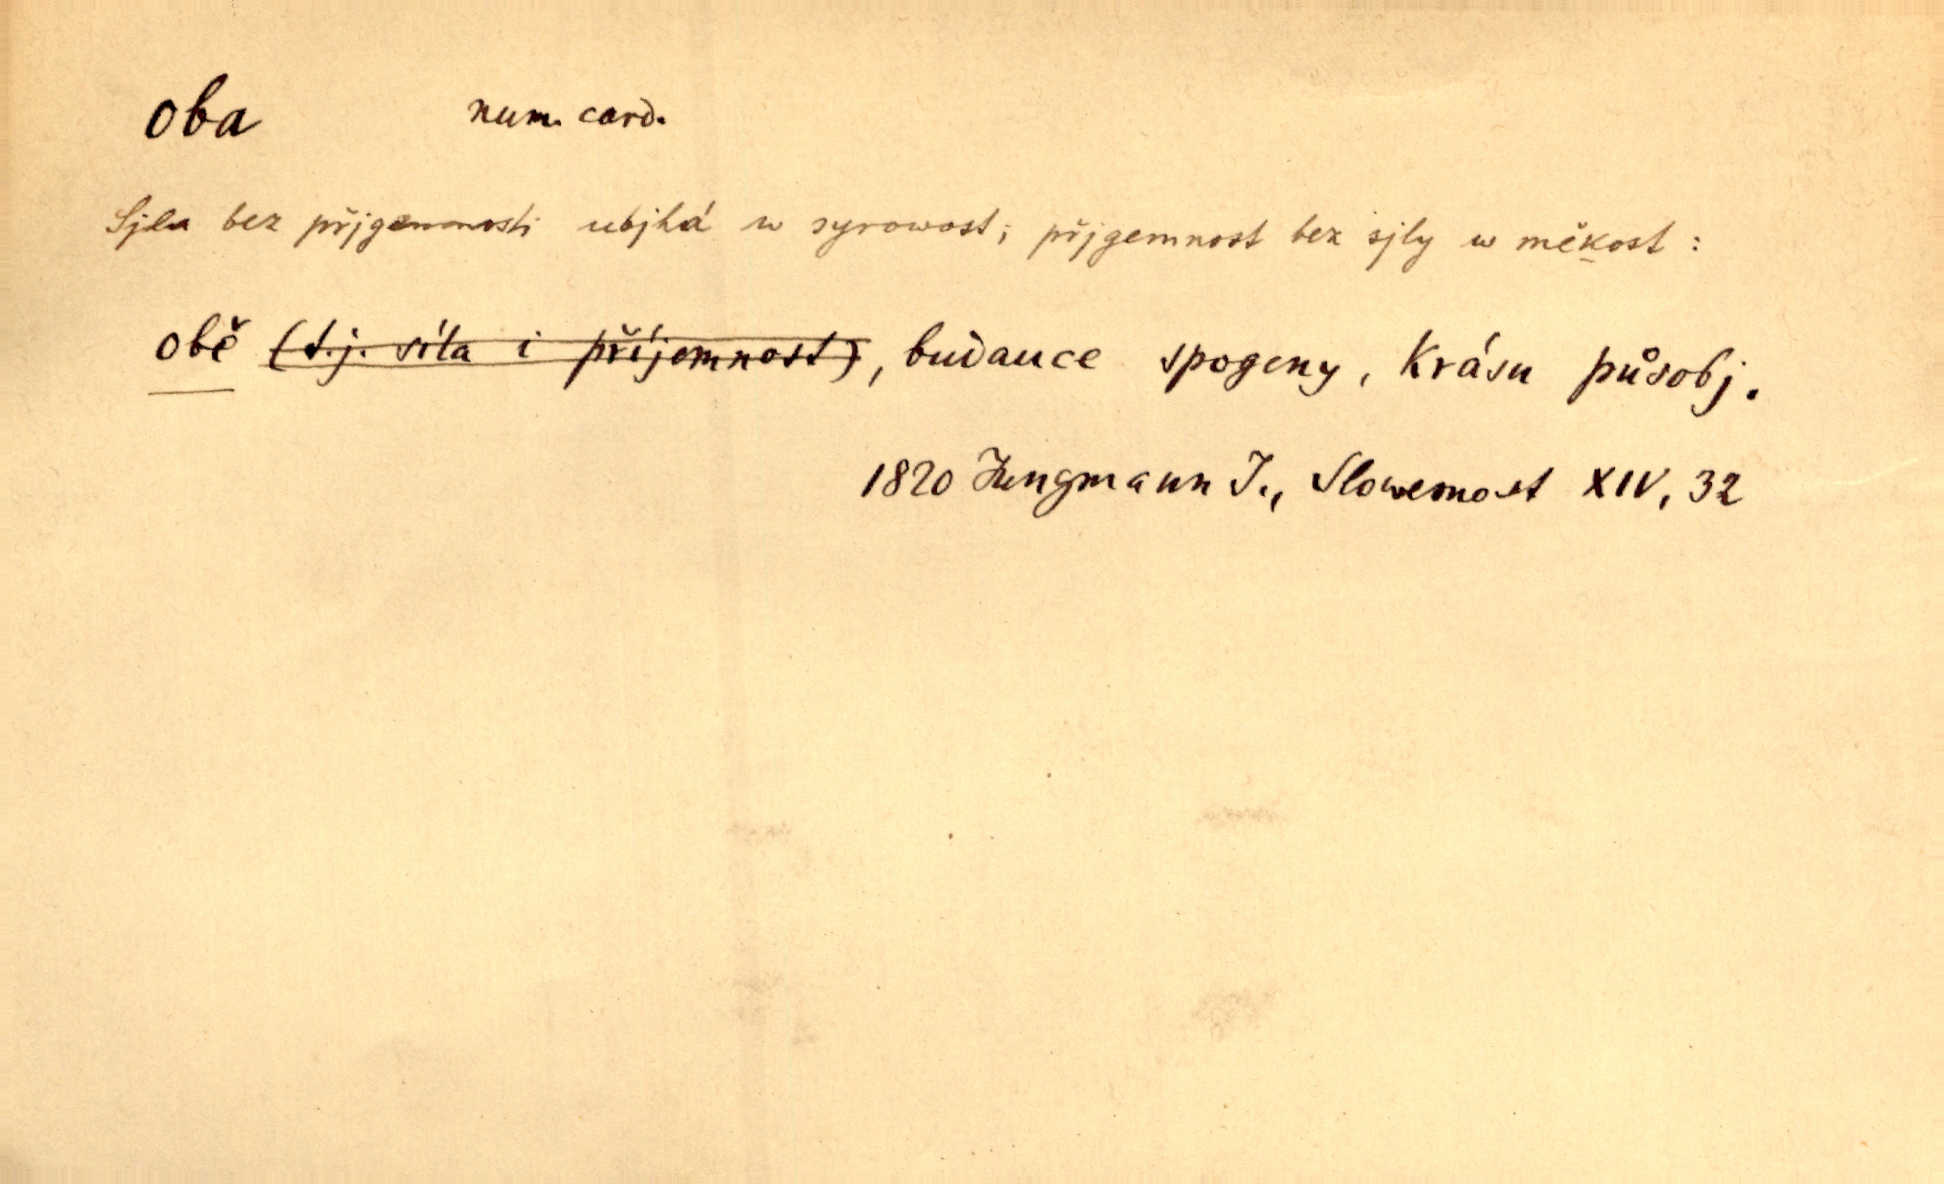 oba num. card.
Sjla bez přjgemnosti ubjhá w syrowost; přjgemnost bez sjly w měkost:
obě (t.j. síla i příjemnost), budauce spogeny, krásu působj.
1820 Jungmann J., Slowesnost XIV, 32